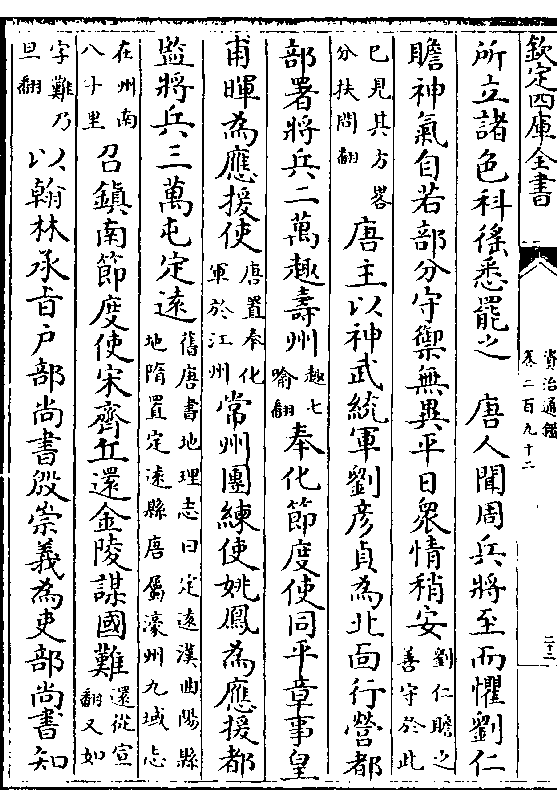 欽定四庫全書
資治通鑑
卷二百九十二
二十二
所立諸色科徭悉罷之　唐人聞周兵將至而懼劉仁
贍神氣自若部分守禦無異平日衆情稍安劉仁瞻之善守於此
已見其方畧分扶問翻　唐主以神武統軍劉彥貞為北面行營都
部署將兵二萬趣壽州趣七喻翻奉化節度使同平章事皇
甫暉為應援使唐置奉化軍於江州常州團練使姚鳳為應援都
監將兵三萬屯定遠舊唐書地理志曰定遠漢曲陽縣地隋置定遠縣唐屬濠州九域志
在州南八十里召鎮南節度使宋齊丘還金陵謀國難還從宣翻又如
字難乃旦翻以翰林承旨户部尚書殷崇義為吏部尚書知